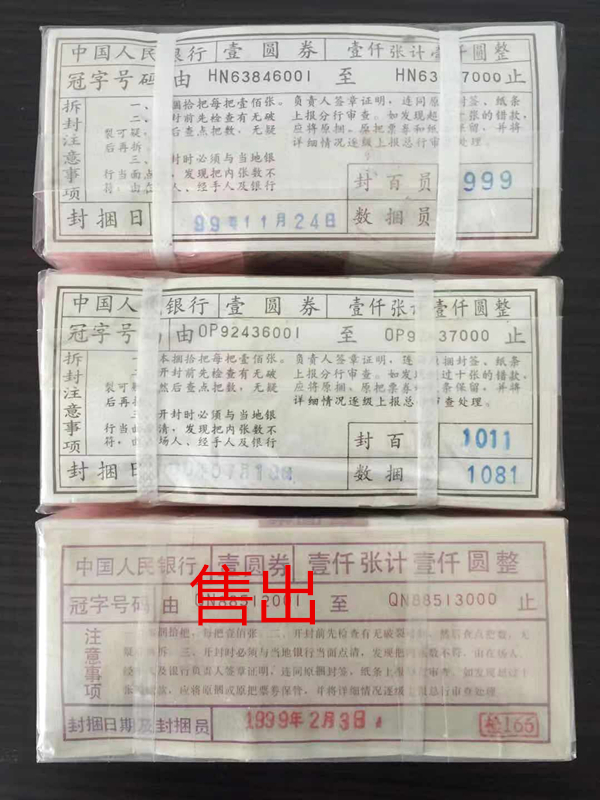 中国人民银行 壹圆券 壹仟张计壹仟圆整
冠字号码 由 HN63846001 至 HN63 7000 止
拆封注意事项
一、 捆拾把每把壹佰张。
二、 封前先检查有无破
裂可疑, 后查点把数,无疑
后再拆
三、 封时必须与当地银
行当面点 ,发现把内张数不
符,由在 人、经手人及银行
负责人签章证明,连同原 封签、纸条
上报分行审查。如发现超 十张的错款,
应将原捆、原把票券和纸 保留,并将
详细情况逐级上报总行审查处理。
封捆日 99年11月24日
封百员 999
数捆员
中国人民银行 壹圆券 壹仟张计壹仟圆整
冠字号码 由 OP92436001 至 OP92 37000 止
拆封注意事项
一、本捆拾把每把壹佰张。
二、 开封前先检查有无破
裂可 然后查点把数,无疑
后再
三、 开封时必须与当地银
行当面 清,发现把内张数不
符,由 场人、经手人及银行
负责人签章证明,连 原捆封签、纸条
上报分行审查。如发 超过十张的错款,
应将原捆、原把票券 条保留,并将
详细情况逐级上报总 审查处理。
封捆日
封百 1011
数捆 1081
中国人民银行 壹圆券 壹仟张计壹仟圆整
冠字号码 由 QN88512001 至 QN88513000 止
售出
注意事项
捆拾把,每把壹佰张。二、开封前先检查有无破裂可 ,然后查点把数,无
疑 拆。三、开封时必须与当地银行当面点清,发现把内张数不符,由在场人、
经 人及银行负责人签章证明,连同原捆封签、纸条上报 审查。如发现超过十
张 错款,应将原捆或原把票券保管,并将详细情况逐级 报总行审查处理
封捆日期及封捆员 1999年2月3日 检166